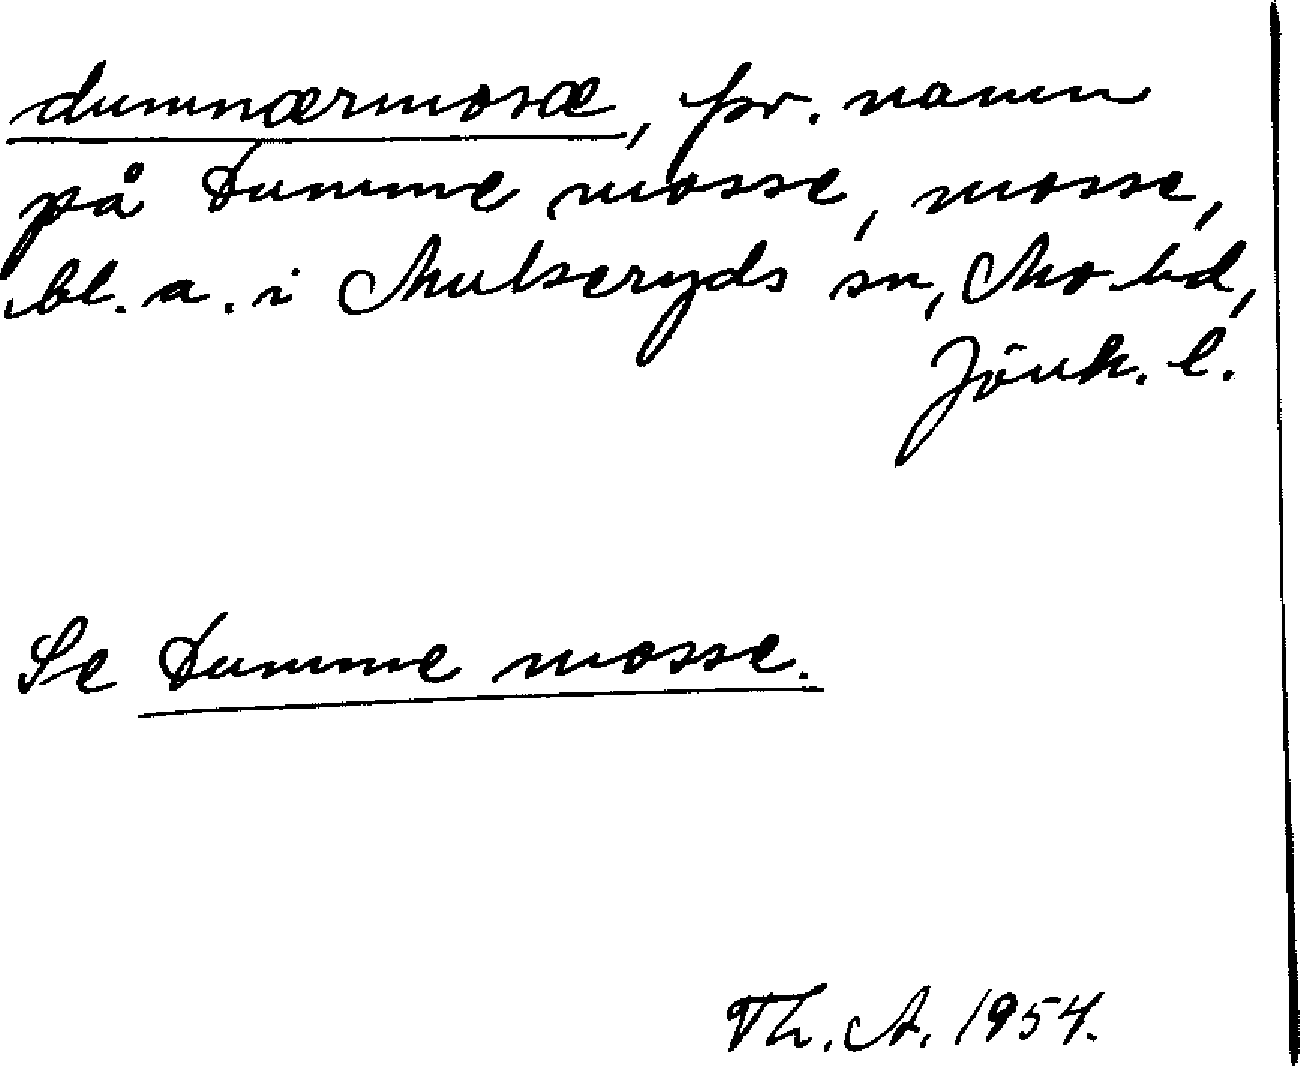 dumnærmosæ, pr. namn
på Dumme mosse, mosse,
bl. a. i Mulseryds sn, Mo hd,
Jönk. l.
Se Dumme mosse.
Th. A. 1954.